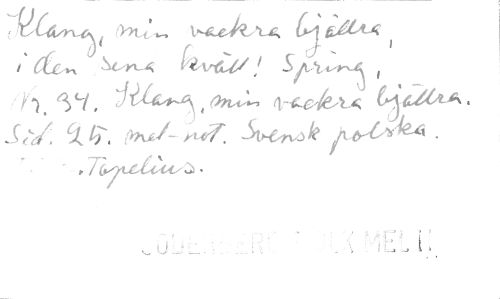 Klang, min vackra bjällra,
i den sena kväll! Spring,
Nr. 34. Klang, min vackra bjällra.
Sid. 25. mel-not. Svensk polska.
. Topelius.